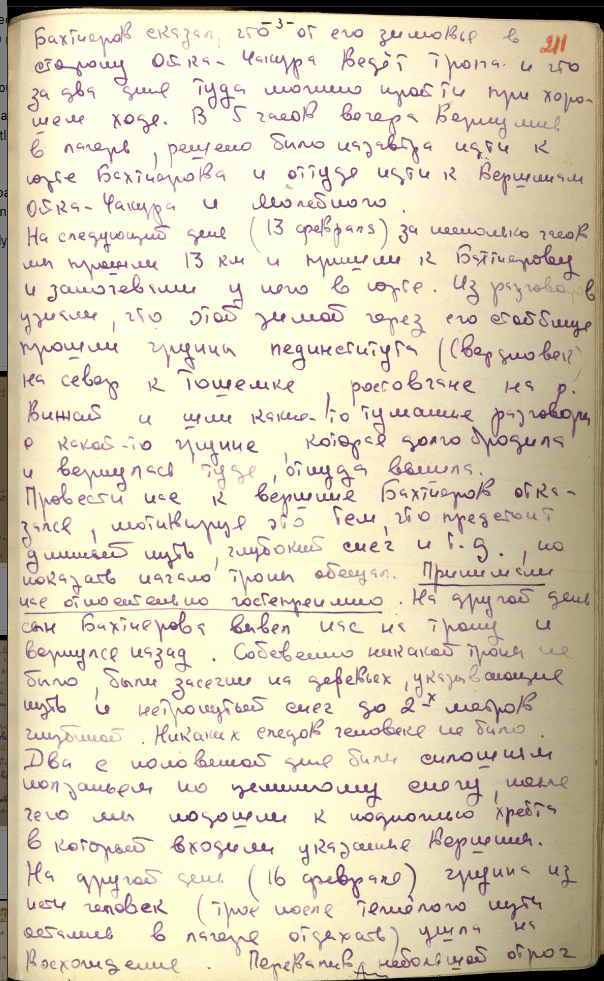 -3-
211
Бахтияров сказал, что от его зимовья в
сторону Ойка-Чакура ведёт тропа и что
за два дня туда можно пройти при хоро-
шем ходе. В 5 часов вечера вернулись
в лагерь, решено было назавтра идти к
юрте Бахтиярова и оттуда идти к вершинам
Ойка-Чакура и Молебного.
На следующий день (13 февраля) за несколько часов
мы прошли 13 км и пришли к Бахтиярову
и заночевали у него в юрте. Из разговоров
узнали, что этой зимой через его стойбище
прошли группы пединститута (Свердловск)
на север к Тошемке, ростовчане на р.
Вижай и шли какие-то туманные разговоры
о какой-то группе, которая долго бродила
и вернулась туда, откуда вышла.
Провести нас к вершине Бахтияров отка-
зался, мотивируя это тем, что предстоит
длинный путь, глубокий снег и т.д., но
показать начало тропы обещал. Принимали
нас относительно гостеприимно. На другой день
сын Бахтиярова вывел нас на тропу и
вернулся назад. Собственно никакой тропы не
было, были засечки на деревьях, указывающие
путь и нетронутый снег до 2-х метров
глубиной. Никаких следов человека не было.
Два с половиной дня были сплошным
ползаньем по целинному снегу, после
чего мы подошли к подножью хребта
в который входили указанные вершины.
На другой день (16 февраля) группа из
пяти человек (трое после тяжёлого пути
остались в лагере отдыхать) ушла на
восхождение. Перевалив небольшой отрог